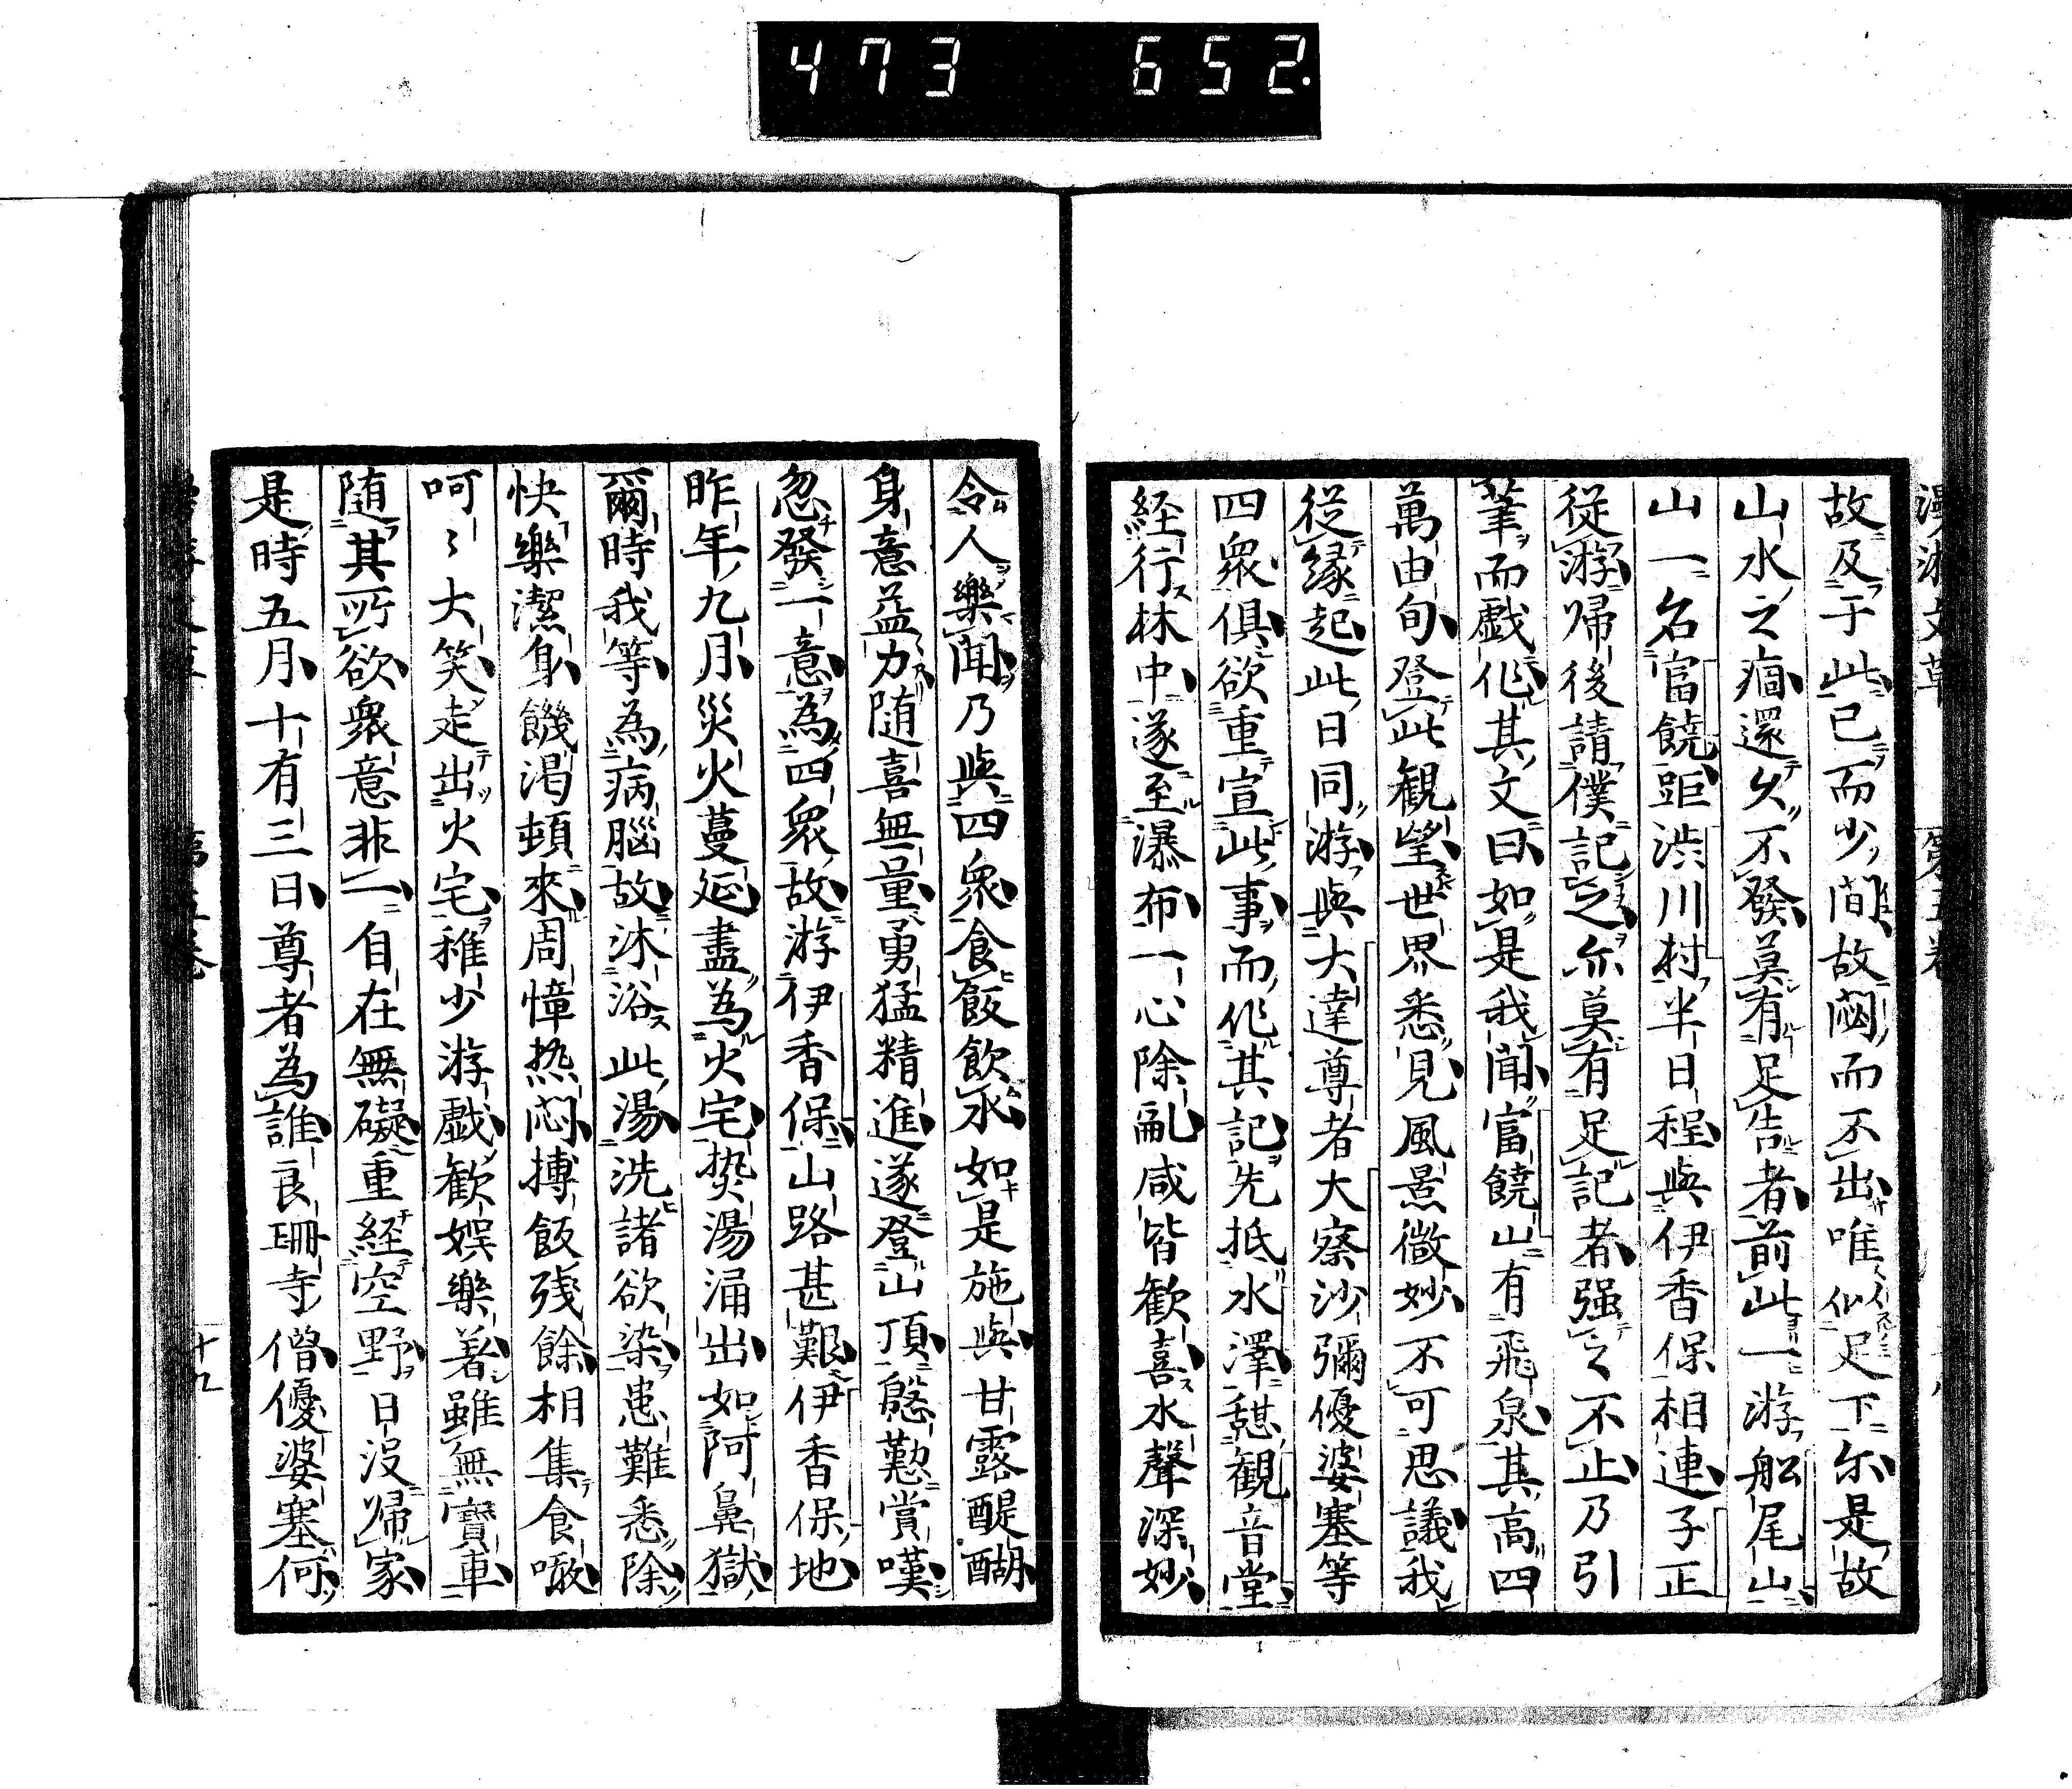 473 652.
漫游文草 第五卷
故及于此已而少間故悶而不出唯似足下尔是故
山水之痼還久不發莫有足告者前此一游船尾山
山一名富饒距渋川村半日程與伊香保相連子正
從游帰後請僕記之尓莫有足記者强之不止乃引
筆而戯作其文曰如是我聞富饒山有飛泉其高四
萬由旬登此観望世界悉見風景微妙不可思議我
從縁起此日同游與大達尊者大察沙彌優婆塞等
四衆俱欲重宣此事而作其記先抵水澤憩観音堂
経行林中遂至瀑布一心除亂咸皆歓喜水聲深妙
令人樂聞乃與四衆食飯飲水如是施與甘露醍醐
身意益力随喜無量勇猛精進遂登山頂慇懃賞嘆
忽發一意為四衆故游伊香保山路甚艱伊香保地
昨年九月災火蔓延盡為火宅𤍠湯涌出如阿鼻獄
爾時我等為病腦故沐浴此湯洗諸欲染患難悉除
快樂潔身饑渇頓來周慞热悶摶飯残餘相集食噉
呵〻大笑走出火宅稚少游戯歓娯樂著雖無寶車
随其所欲衆意非一自在無礙重経空野日没帰家
是時五月十有三日尊者為誰良珊寺僧優婆塞何
十九